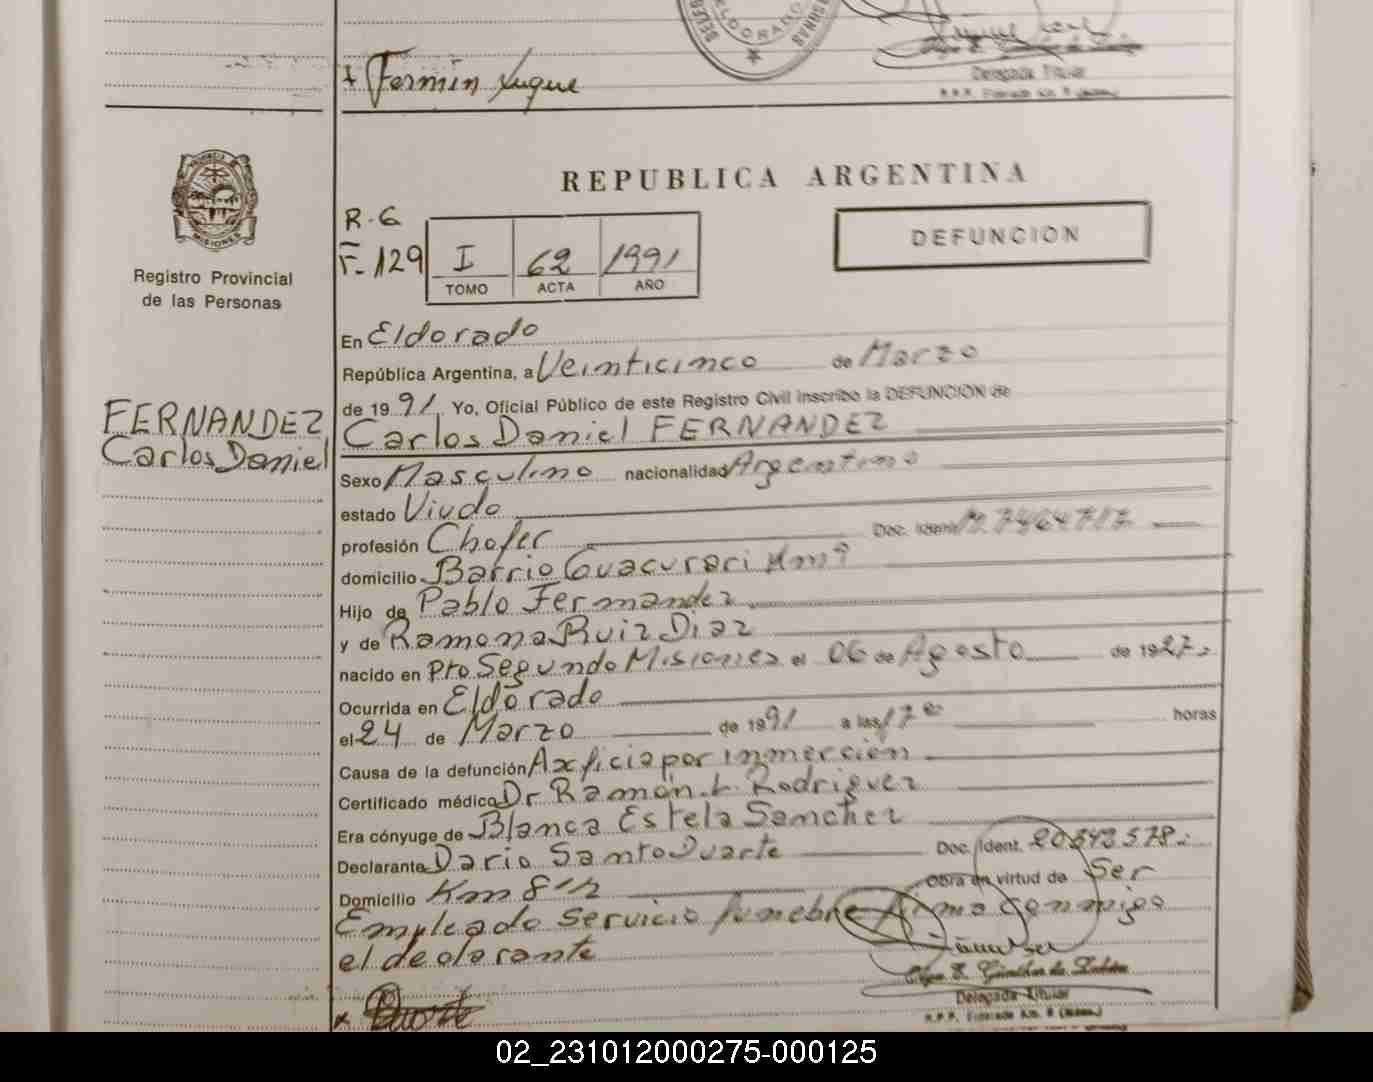 Fermin Luque
Delegada Titular
REPUBLICA ARGENTINA
DEFUNCION
R.G
F-129
I 62 1991
TOMO ACTA AÑO
PROVINCIA DE
MISIONES
Registro Provincial
de las Personas
FERNANDEZ
Carlos Daniel
En Eldorado
República Argentina, a Veinticinco de Marzo
de 1991. Yo, Oficial Público de este Registro Civil inscribo la DEFUNCION de
Carlos Daniel FERNANDEZ
Sexo Masculino nacionalidad Argentino
estado Viudo
profesión Chofer Doc. Ident. M. 7464717
domicilio Barrio Guacurari Km 9
Hijo de Pablo Fernandez
y de Ramona Ruiz Diaz
nacido en Pto Segundo Misiones el 06 de Agosto de 1927.
Ocurrida en Eldorado
el 24 de Marzo de 1991 a las 17 horas
Causa de la defunción Axficia por inmercion
Certificado médico Dr Ramón L. Rodriguez
Era cónyuge de Blanca Estela Sanchez
Declarante Dario Santo Duarte Doc. Ident. 20.343.578.
Domicilio Km 8 1/2 Obra en virtud de Ser
Empleado servicio funebre Firma conmigo
el declarante
Duarte
Delegada Titular
R.P.P. Eldorado Km. 9 (Mnes.)
02_231012000275-000125